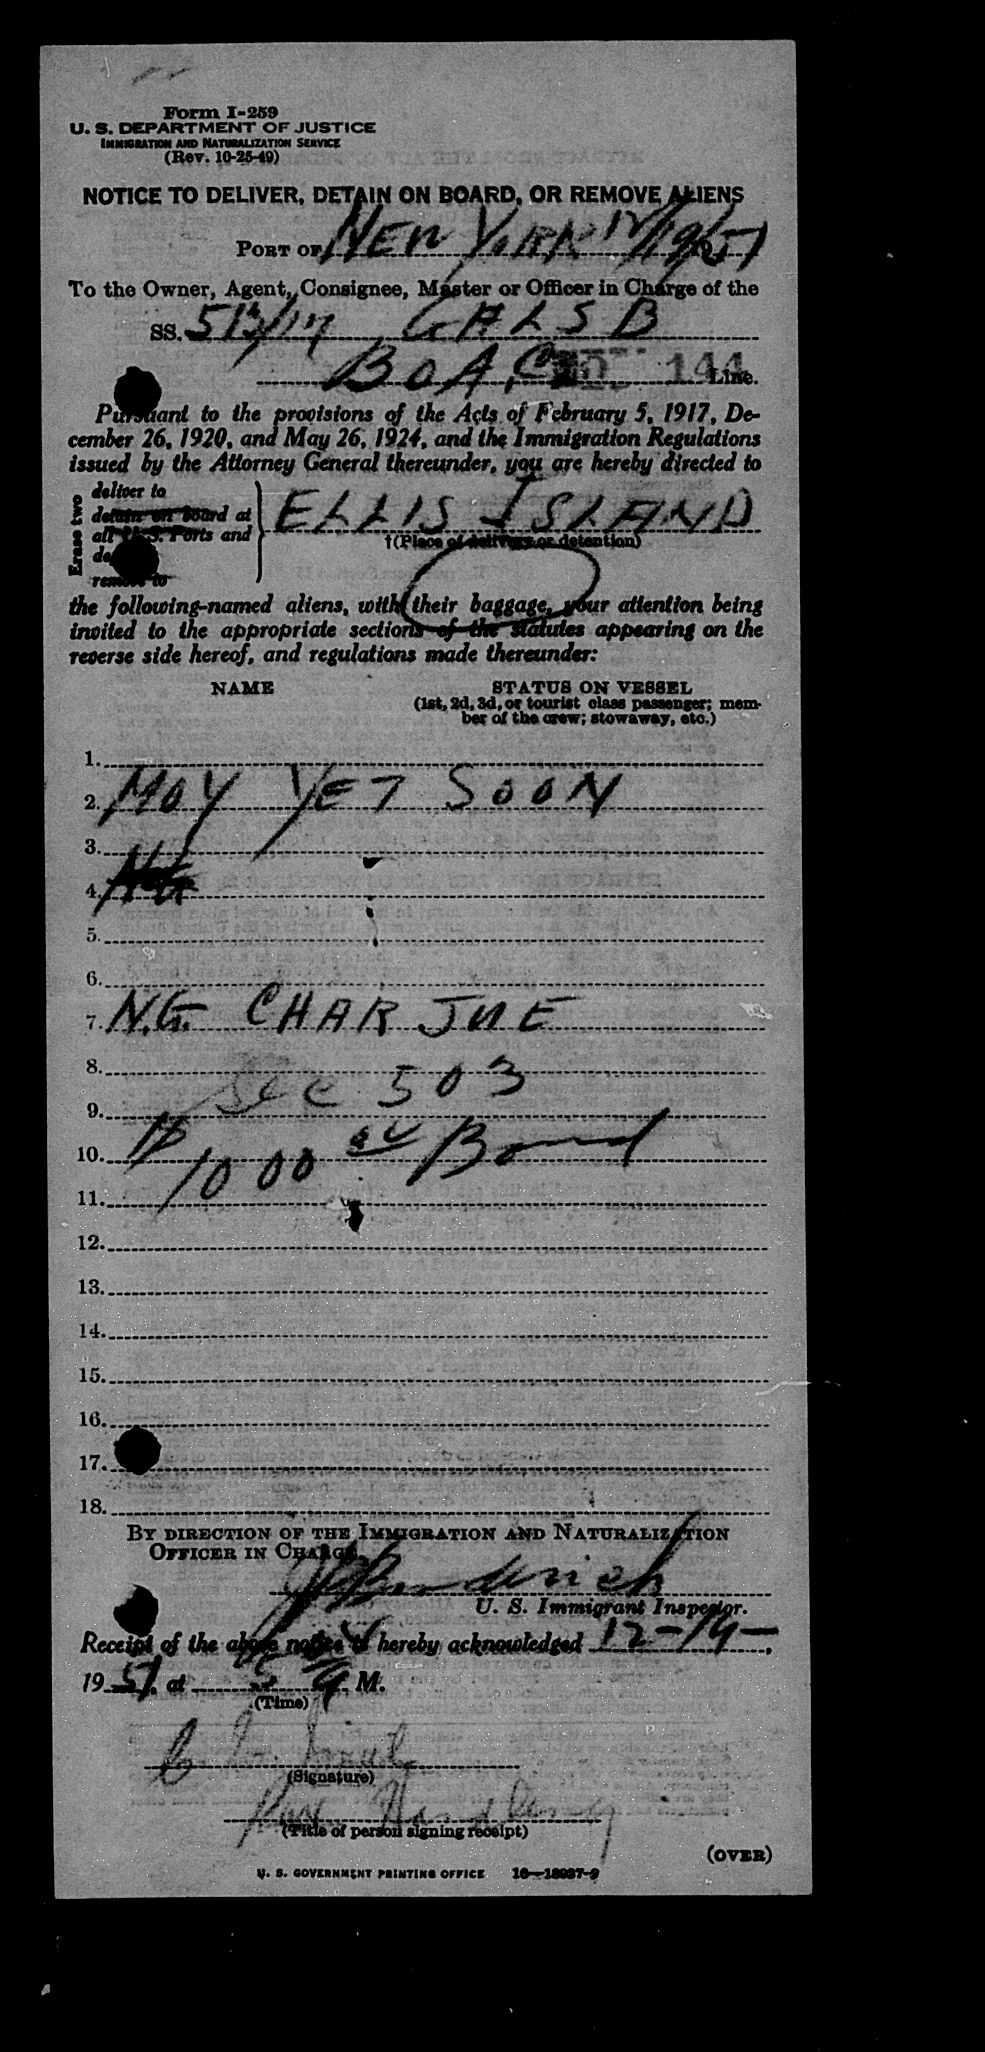 Form I-259
U. S. DEPARTMENT OF JUSTICE
IMMIGRATION AND NATURALIZATION SERVICE
(Rev. 10-25-49)
NOTICE TO DELIVER, DETAIN ON BOARD, OR REMOVE ALIENS
PORT OF NEW YORK 12/19/51
To the Owner, Agent, Consignee, Master or Officer in Charge of the
SS. GALSB
BOAC 144 Line.
Pursuant to the provisions of the Acts of February 5, 1917, De-
cember 26, 1920, and May 26, 1924, and the Immigration Regulations
issued by the Attorney General thereunder, you are hereby directed to
Erase two
deliver to
detain on board at
all U.S. Ports and
remove to
ELLIS ISLAND
†(Place of delivery or detention)
the following-named aliens, with their baggage, your attention being
invited to the appropriate sections of the statutes appearing on the
reverse side hereof, and regulations made thereunder:
NAME STATUS ON VESSEL
(1st, 2d, 3d, or tourist class passenger; mem-
ber of the crew; stowaway, etc.)
1.
2. MOY YET SOON
3.
4.
5.
6.
7. N.G. CHAR JUE
8.
9. Sec 503
10. $1000 00 Bond
11.
12.
13.
14.
15.
16.
17.
18.
BY DIRECTION OF THE IMMIGRATION AND NATURALIZATION
OFFICER IN CHARGE,
U. S. Immigrant Inspector.
Receipt of the above notice is hereby acknowledged 12-19-,
19 51, at M.
(Time)
(Signature)
Handling
(Title of person signing receipt)
(OVER)
U. S. GOVERNMENT PRINTING OFFICE 16—18937-2